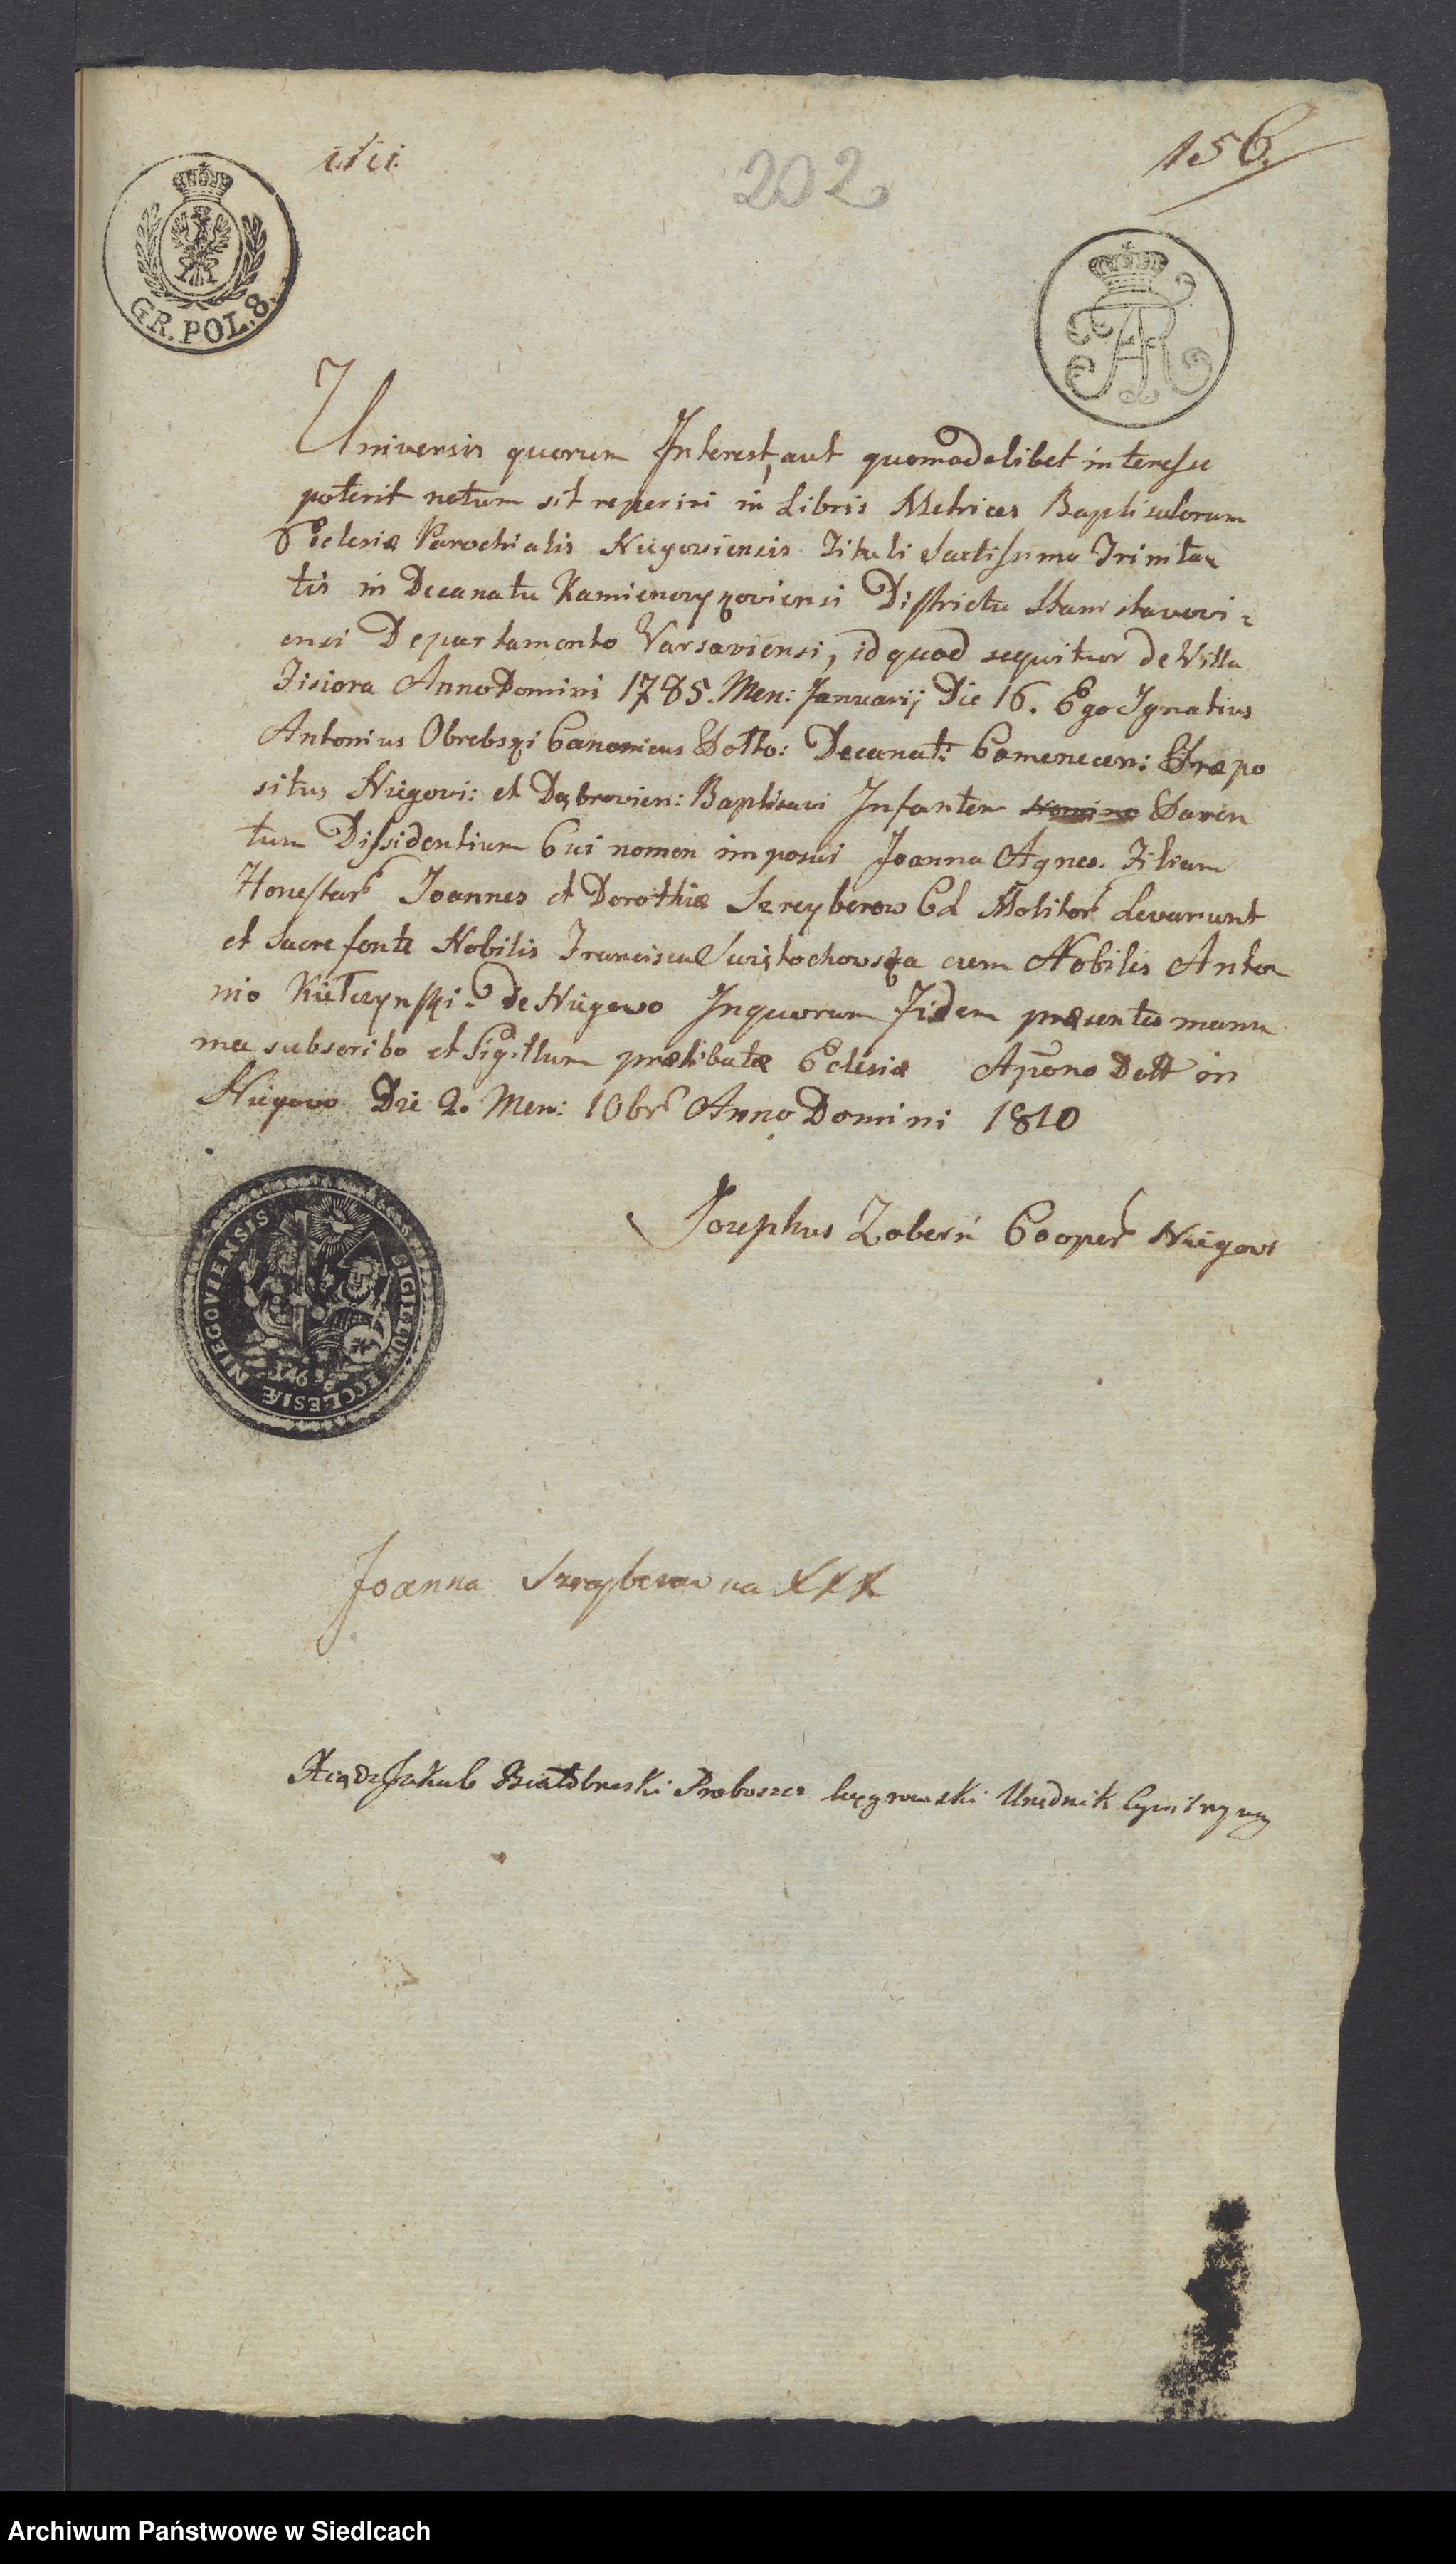 202
156
GR. POL. 8.
Universis quorum Interest, aut quomodolibet interesse
poterit notum sit reperiri in Libris Metrices Baptisatorum
Eclesiæ Parochialis Niegoviensis Tituli Sactissima Trinita
tis in Decanatu Kamienczyqoviensi Districtu Stanislavovi=
ensi Departamento Varsaviensi, id quod sequitur de Villa
Fisiora Anno Domini 1785. Men: Januarij Die 16. Ego Ignatius
Antonius Obrebsqi Canonicus Polto: Decanat: Camenecen: Præpo
situs Niegovi: et Dąbrovien: Baptisavi Infantem Paren
tum Dissidentium Cui nomen imposui Joanna Agnes. Filiam
Honestar Joannes et Dorothiæ Szreyberow Molitor Levarunt
et Sacre fonte Nobilis Francisca Swiętochowsqa cum Nobilis Anto
nio Kiełczynsqi de Niegowo Inquorum Fidem præsentes manu
mea subscribo et Sigillum prælibatæ Eclesiæ Apono Datt in
Niegovo Die 2. Men: 10br Anno Domini 1810
Josephus Cooper Niegovi
SIGILLUM ECCLESIÆ NIEGOVIENSIS
Joanna Szreyberowna XXX
Xiądz Jakub Białobrzeski Proboszcz Węgrowski Urzędnik Cywilny
Archiwum Państwowe w Siedlcach